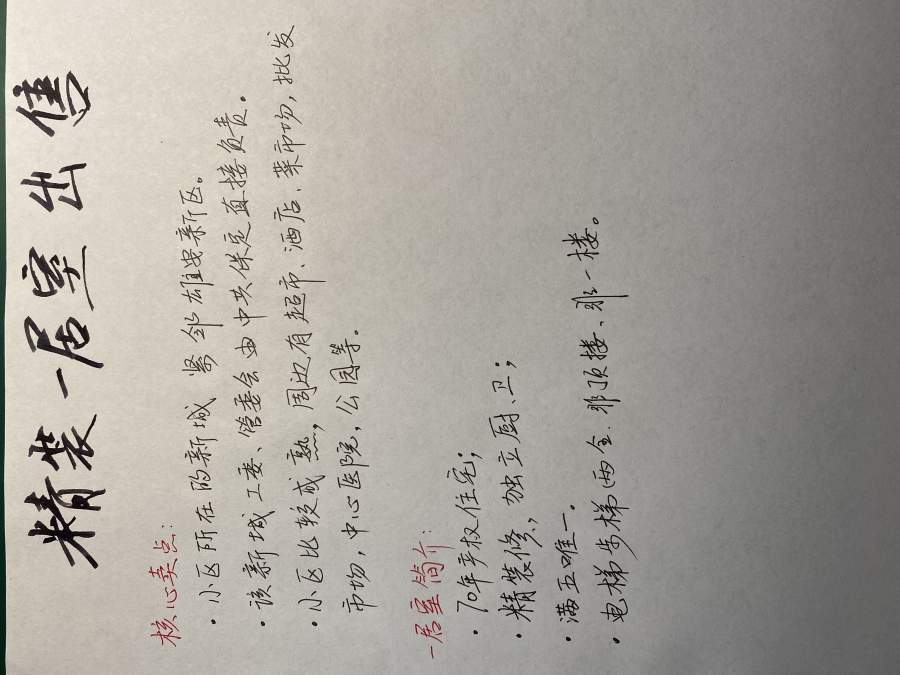 精装一居室出售
核心卖点:
· 小区所在的新城 紧邻雄安新区。
· 该新城工委、管委会由中共保定直接负责。
· 小区比较成熟,周边有超市、酒店、菜市场,批发
市场,中心医院,公园等.
一居室简介:
· 70年产权住宅;
· 精装修,独立厨.卫;
· 满五唯一.
· 电梯步梯两全.非顶楼、非一楼。